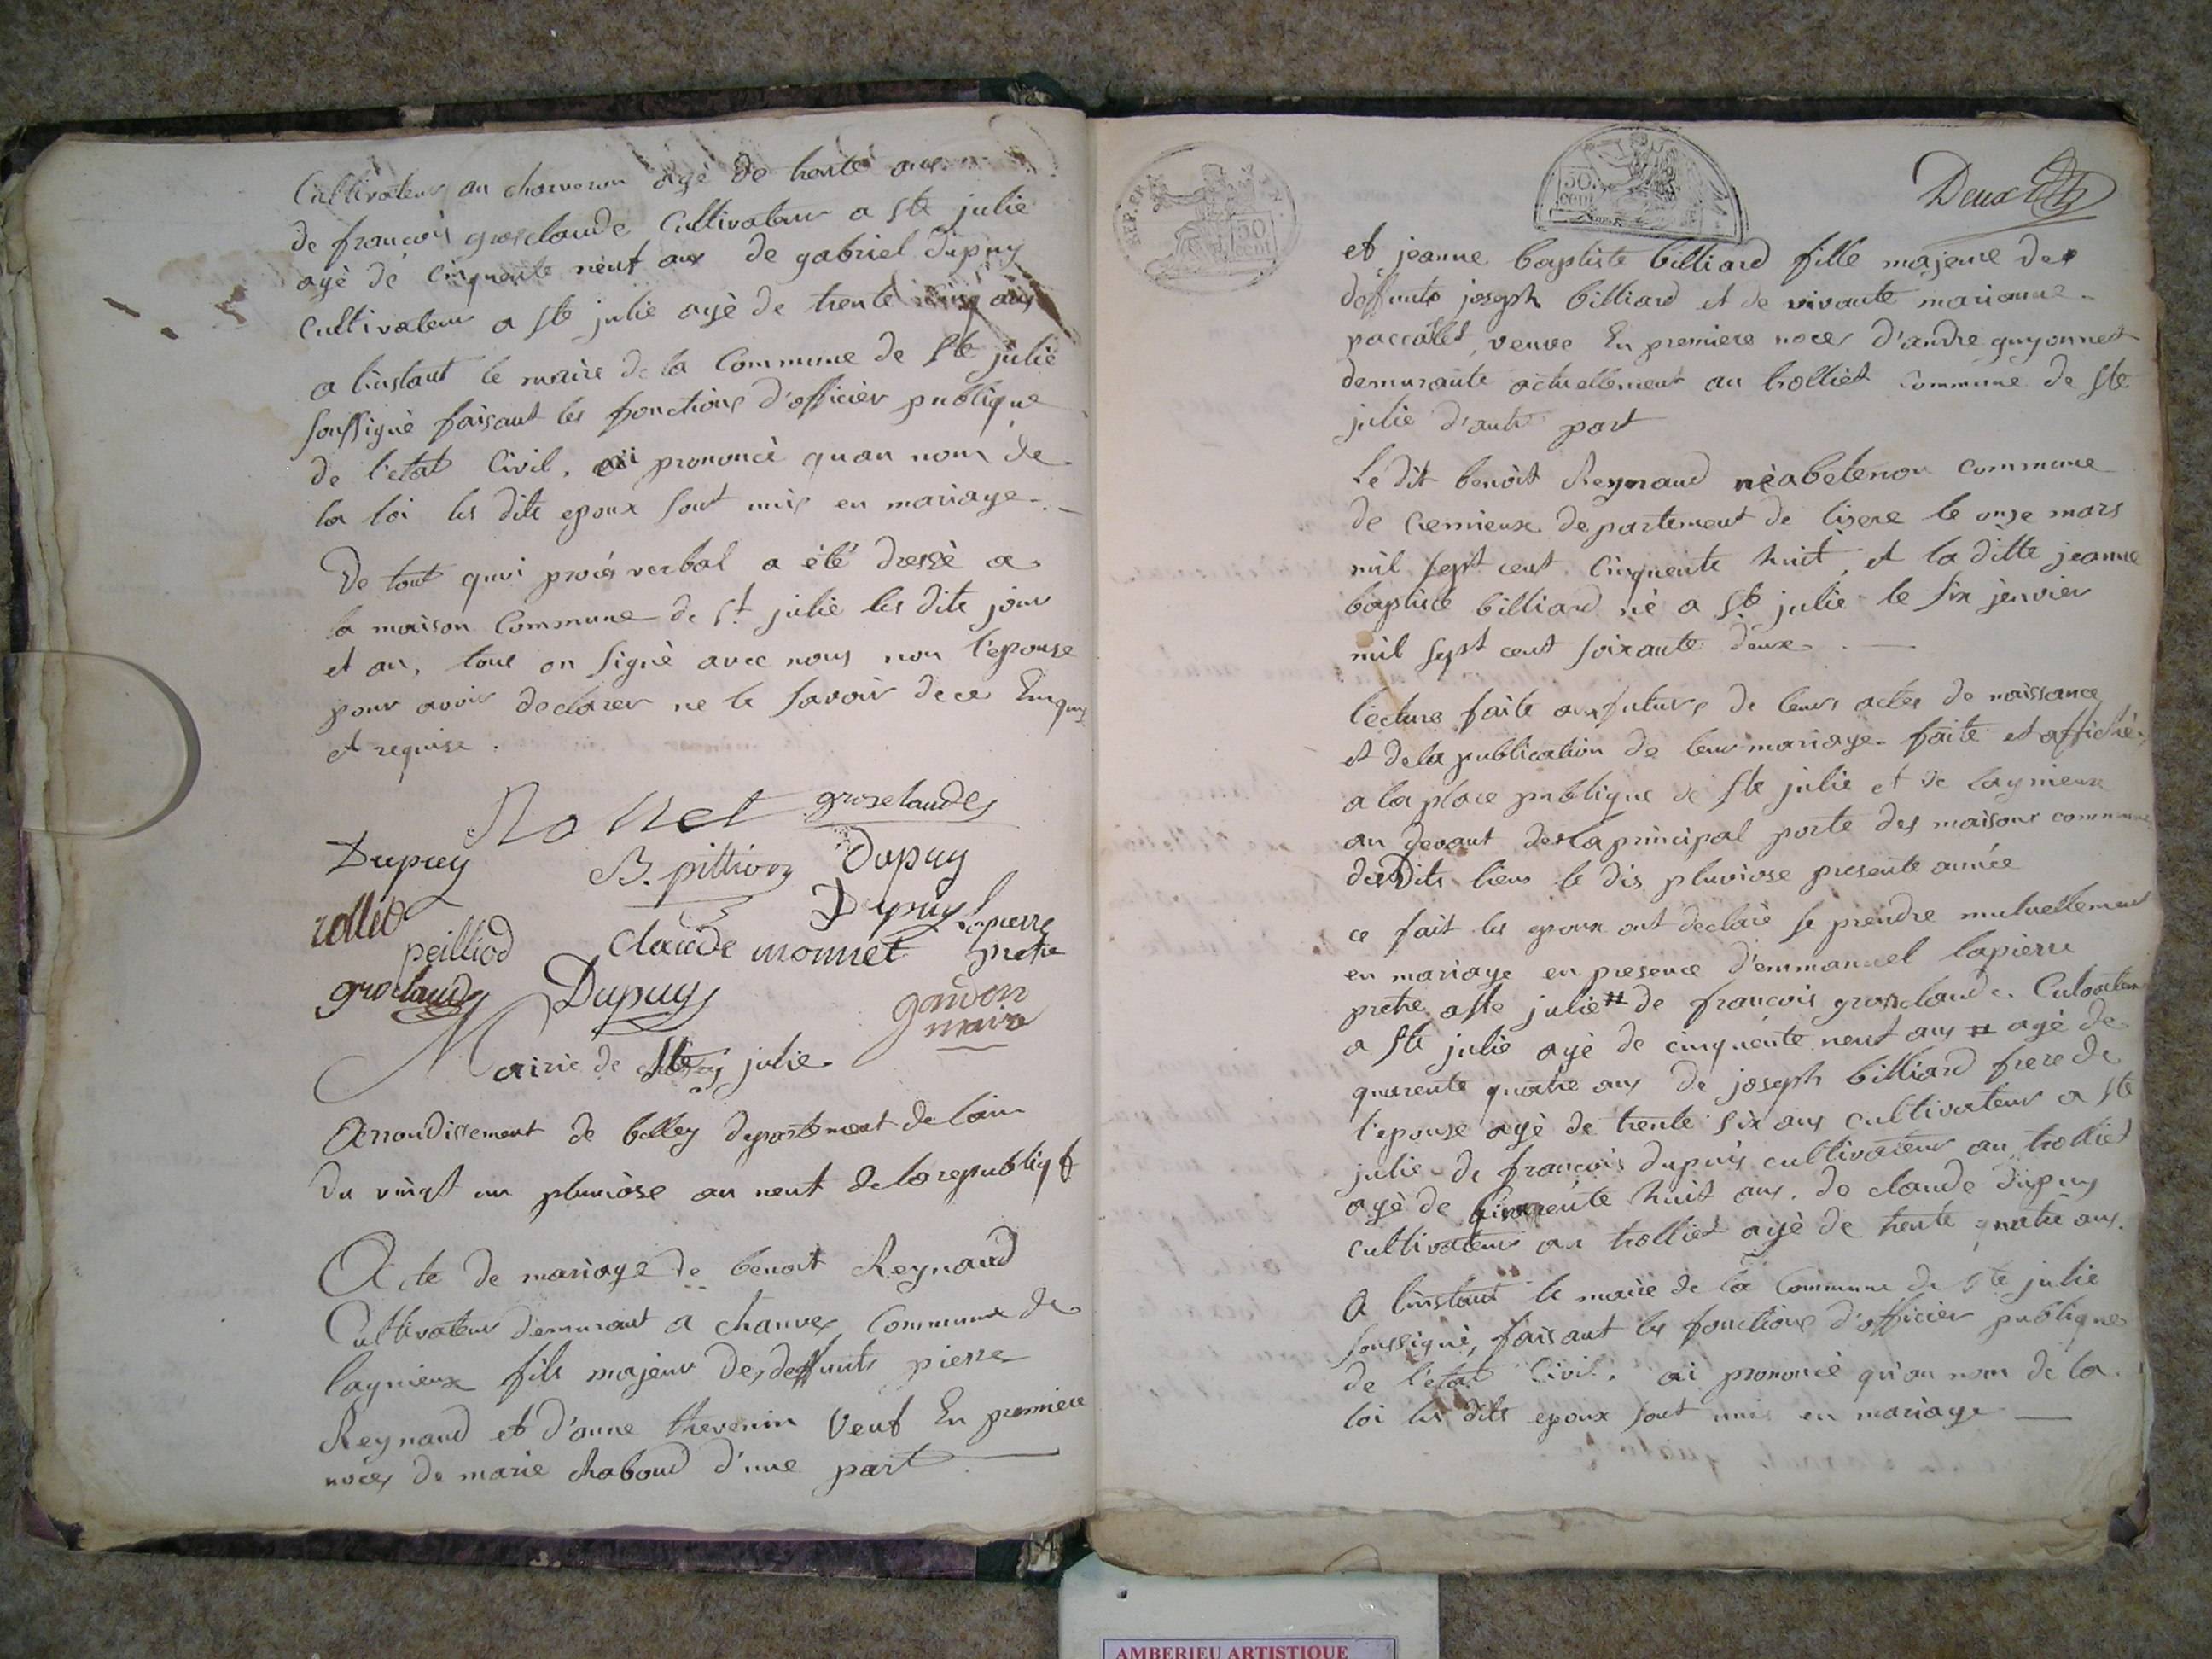 Cultivateur au charveron agè de trente ans
de francois grosclaude Cultivateur a Ste julie
agè de cinquente neuf ans de gabriel dupuy
Cultivateur a Ste julie agè de trente cinq ans
a linstant le maire de la Commune de Ste julie
soussignè faisant les fonctions d'officier publique
de l'etat Civil, ai prononcè quau nom de
la loi les dits epoux sont unis en mariage
De tout quoi procès verbal a été dressè a
la maison Commune de St julie les dits jour
et an, tous on signè avec nous non l'epouse
pour avoir declarer ne le savoir de ce Enquis
et requise.
Nollet grosclaudes
Dupuy B. pittion Dupuy
rollet Dupuy Lapierre
peilliod Claude monnet pretre
grosclaude Dupuy gandon
maire
Mairie de Ste julie
Arrondissement de belley departement de lain
du vingt un pluviose an neuf de la republiq f
Acte de mariage de benoit Reynaud
Cultivateur demurant a chanves Commune de
lagnieux fils majeur des deffunts pierre
Reynaud et d'anne thevenin Veuf En premiere
noces de marie chaboud d'une part
REP. FRA. 50 cent
50. cent
Deux
et jeanne baptiste billiard fille majeure de
deffunts joseph billiard et de vivante marianne
paccallet, veuve En premiere noces d'andre guyonnet
demurante actuellement au trolliet Commune de Ste
julie d'autre part
Le dit benoit Reynaud nè a betenou commune
de Cremieux departement de lisere le onze mars
mil sept cent Cinquente huit, et la ditte jeanne
baptiste billiard nè a Ste julie le six jenvier
mil sept cent soixante deux.
lecture faite aux futurs de leurs actes de naissance
et de la publication de leur mariage faite et affichée
a la place publique de Ste julie et de laynieux
au devant de la principal porte des maisons communes
desdits lieux le dis pluviose presente année
ce fait les epoux ont declaré se prendre mutuellement
en mariage en presence d'emmanuel lapierre
pretre a Ste julie # de francois grosclaude. Culvateur
a Ste julie agè de cinquente neuf ans # agè de
quarente quatre ans de joseph billiard frere de
l'epouse agè de trente six ans cultivateur a Ste
julie de francois dupuis cultivateur au trolliet
agè de quarente huit ans. de claude dupuy
cultivateur au trolliet agè de trente quatre ans.
A linstant le maire de la Commune de Ste julie
soussignè, faisant les fonctions d'officier publique
de l'etat Civil. ai prononcé qu'au nom de la
loi les dits epoux sont unis en mariage
AMBERIEU ARTISTIQUE